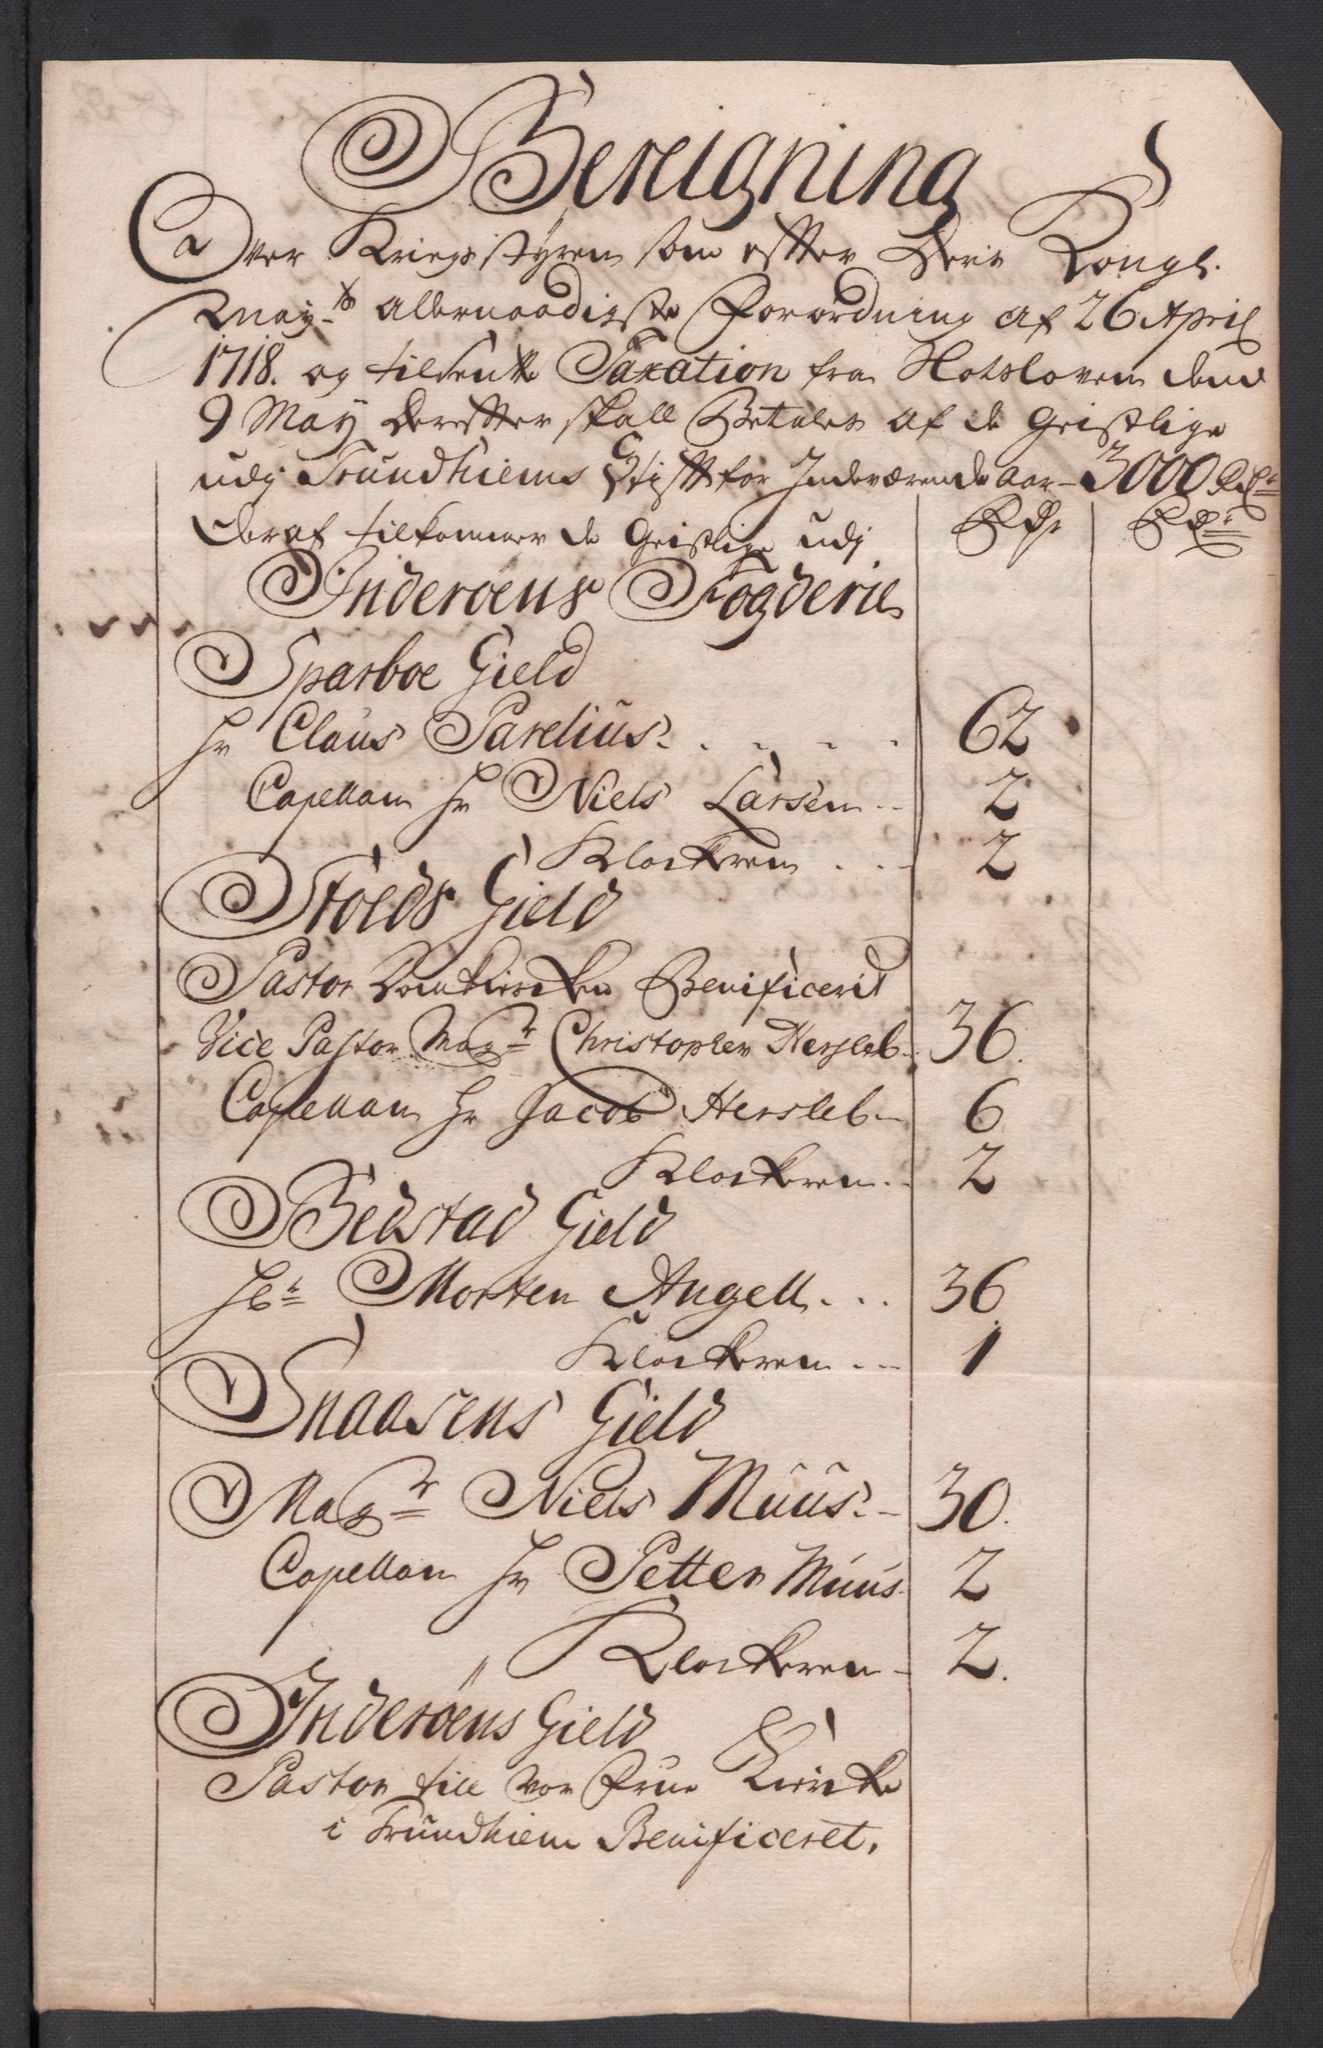 Bereigning
Over Kriegs styren som effter Deris Kongl.
May.ts allernaadigste Forordning af 26 April
1718. og tilsente Taxation fra Slotsloven dend
9 May derefter skall Betales af de Geistlige
udj Trundhiems Stifft for Indeværende Aar - 3000 Rdr
Deraf tilkommer de Geistlige udj Rdr Rdr
Inderøens Fogderie
Sparboe Gield
Hr Claus Parelius. . . . . 62
Capellan Hr Niels Larsen.. 2
Klockeren . . . 2
Stoeds Gield
Pastor Domkiercken Benificerit
Vice Pastor Magr Christopher Hersleb. 36.
Capellan Hr Jacob Hersleb - 6
Klockeren.. 2
Bedstad Gield
Hr Morten Angell. . . 36
Klockeren . . 1
Snaasens Gield
Magr Niels Muus. - 30.
Capellan Hr Petter Muus. 2
Klockeren - 2.
Inderøens Gield
Pastor till vor Frue Kircke
i Trundhiem Benificeret.